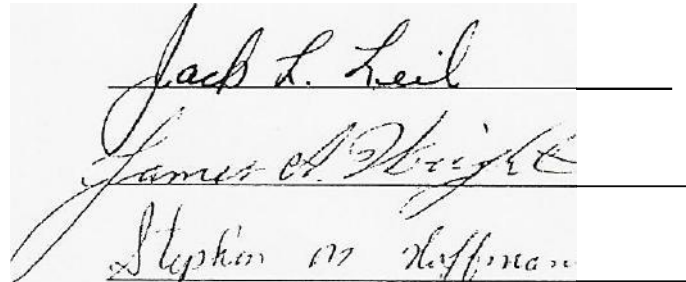 Jack L. Leil
James A. Wright
Stephen M Hoffman